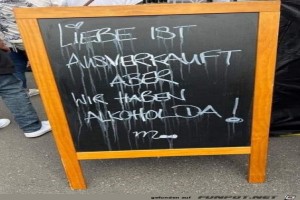 LIEBE IST
AUSVERKAUFT
ABER
WIR HABEN
ALKOHOL DA!
gefunden auf www.FUNPOT.NET